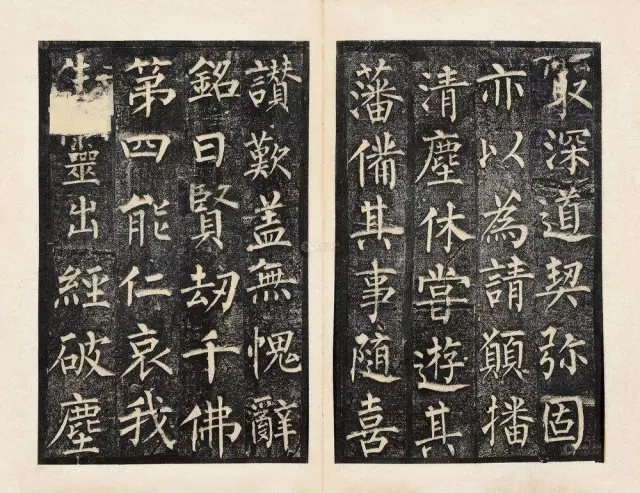 最深道契弥固
亦以為請願播
清塵休甞遊其
藩備其事隨喜
讃歎盖無愧辭
銘曰賢刧千佛
第四能仁哀我
生靈出經破塵